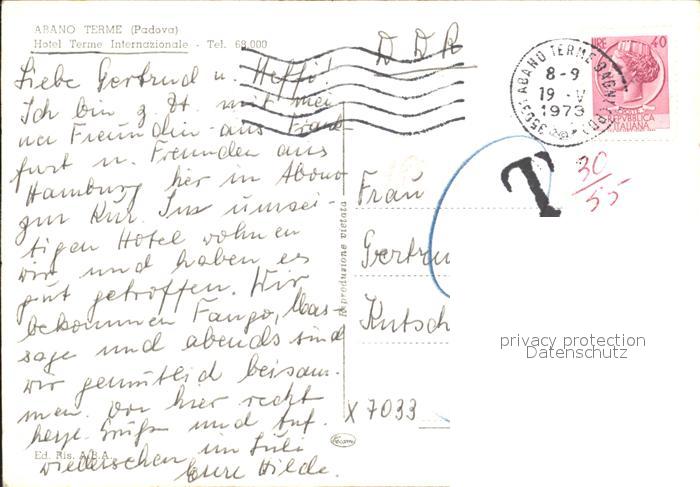 ABANO TERME (Padova)
Hotel Terme Internazionale - Tel. 68.000
Liebe Gertrud u. Steffi!
Ich bin z. Zt. mit mei-
ner Freundin aus Frank-
furt u. Freunden aus
Hamburg hier in Abano
zur Kur. Im umsei-
tigen Hotel wohnen
wir und haben es
gut getroffen. Wir
bekommen Fango, Mas-
sage und abends sind
wir gemütlich beisam-
men. Von hier recht
herzl. Grüße und Auf-
wiedersehen im Juli
Eure Hilde.
Ed. Ris. A.B.A.
Riproduzione vietata
DDR
35031 ABANO TERME
8-9
19 -V
1973
LIRE 40
POSTE
REPVBBLICA
ITALIANA
T
30/55
Frau
Gertru
Kutsch
X 7033
privacy protection
Datenschutz